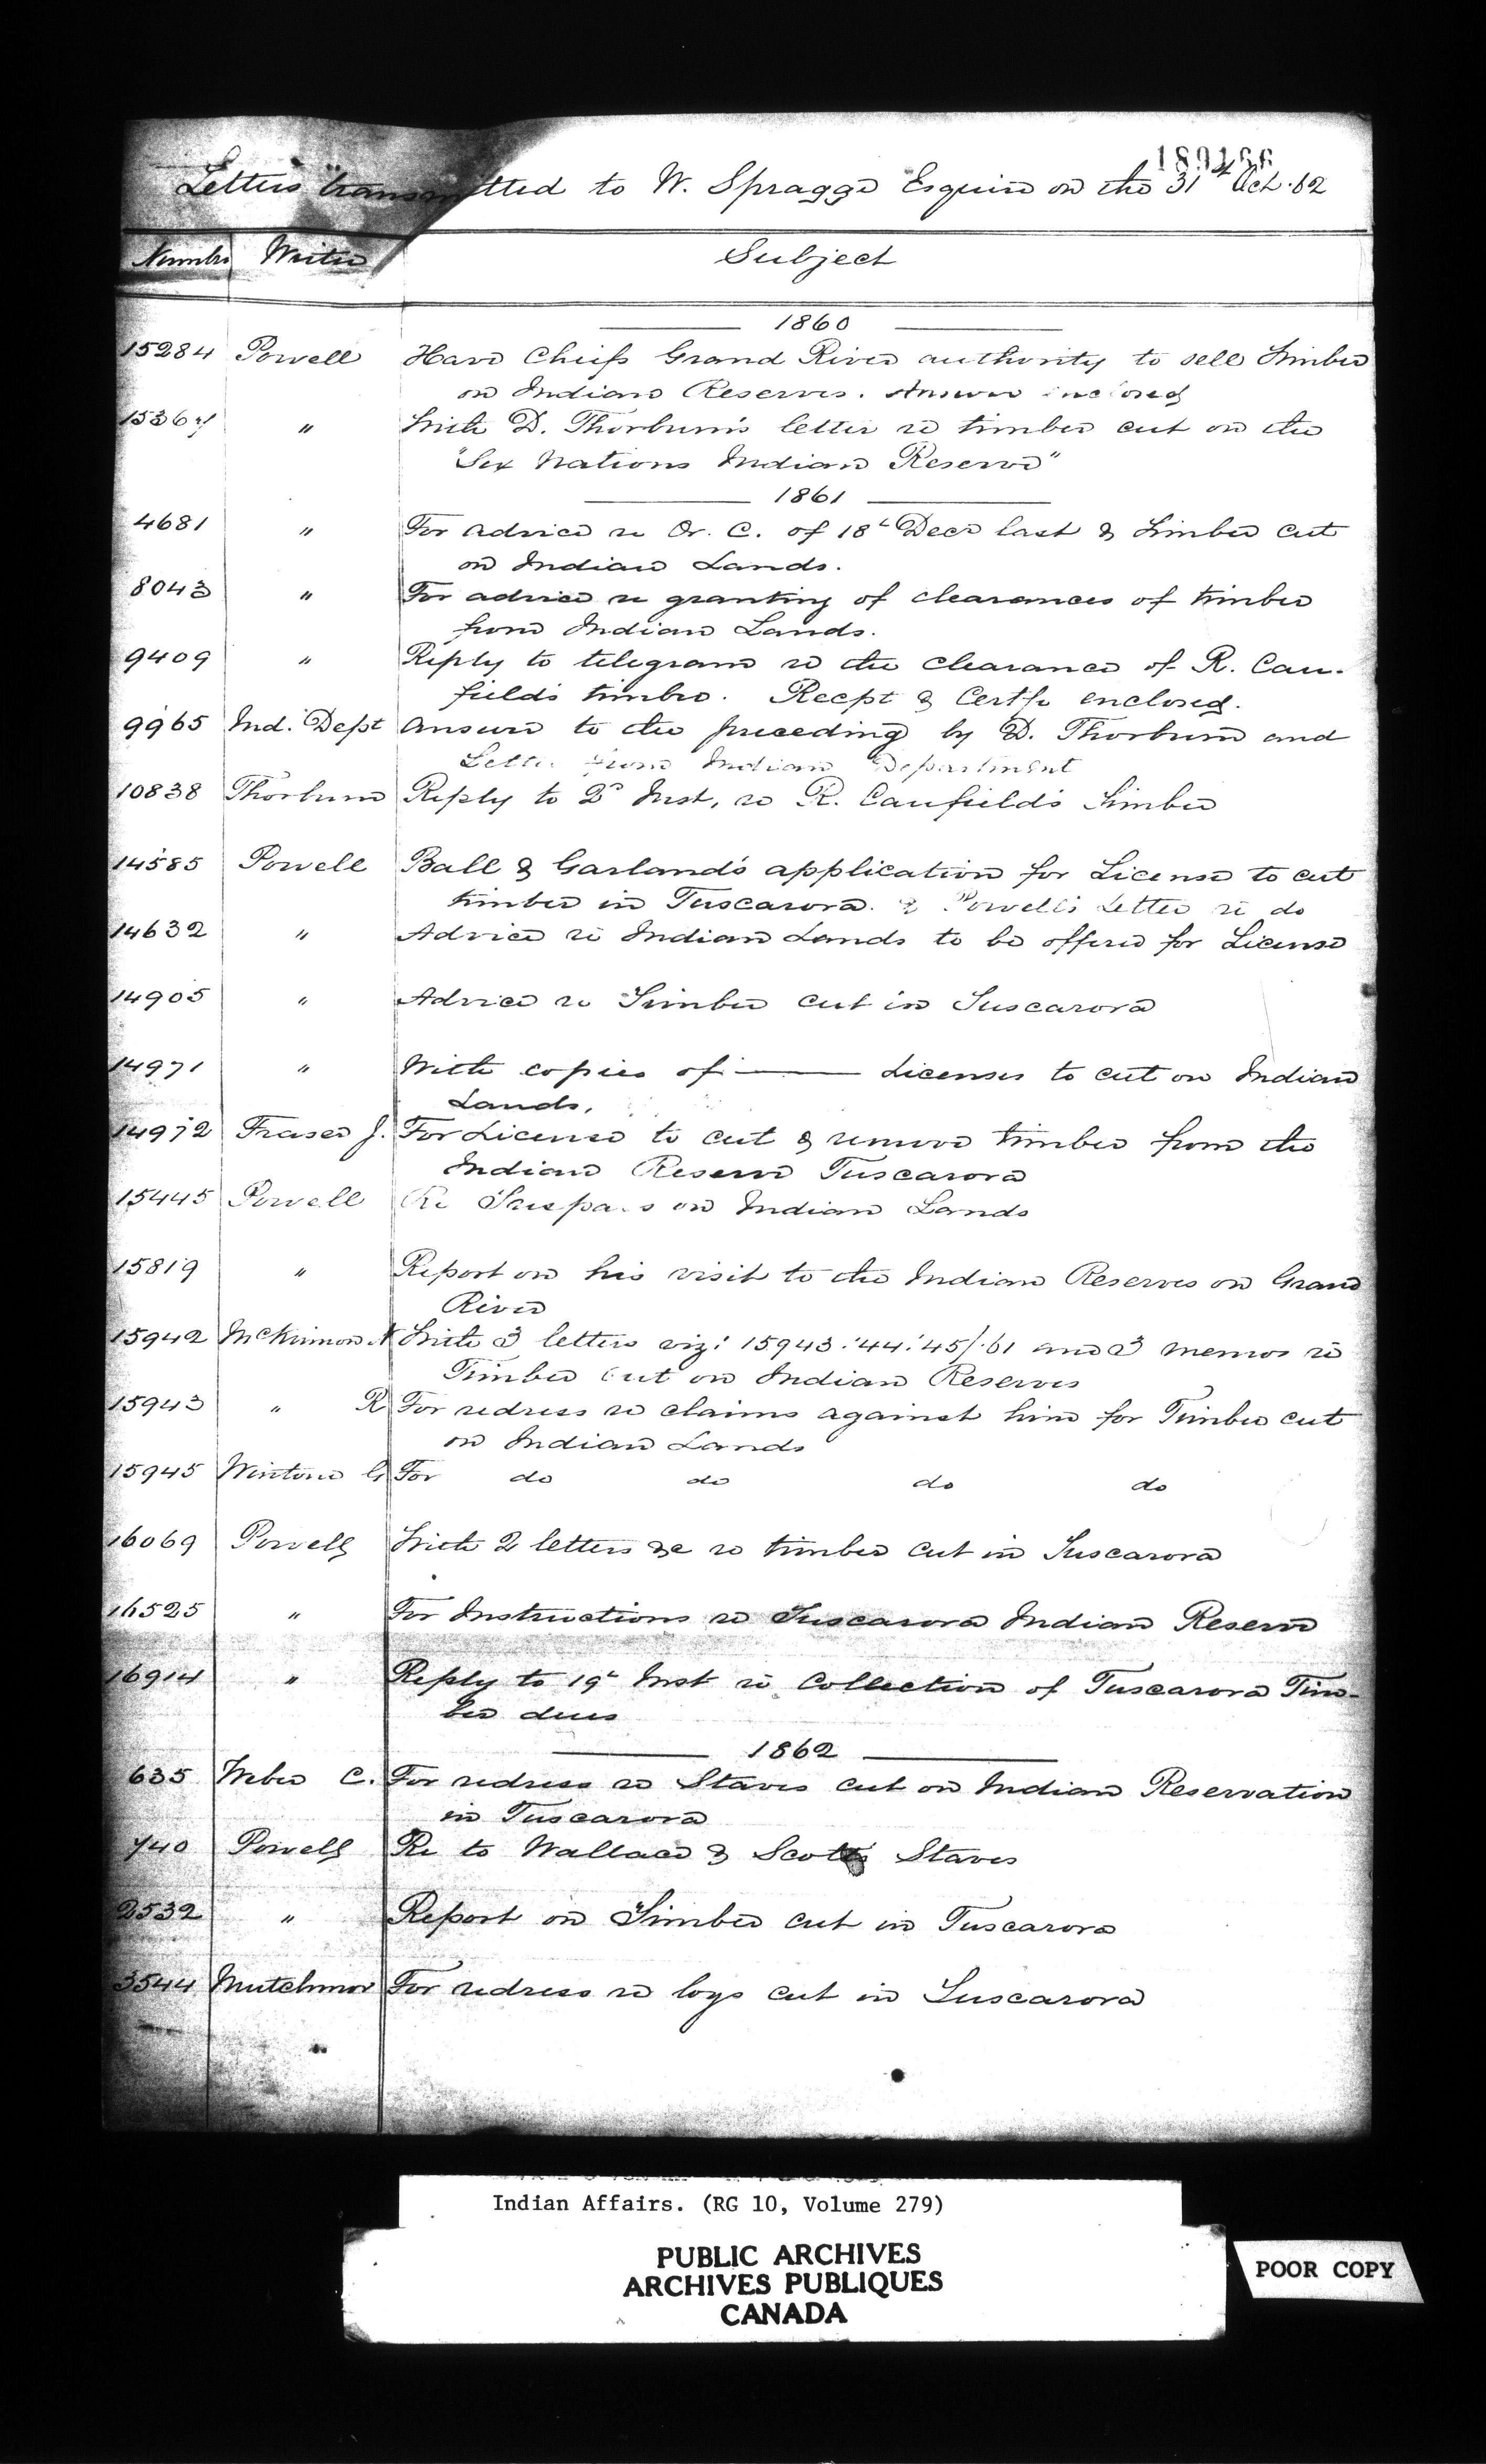 189166
Letters transmitted to W. Spragge Esquire on the 31st Oct. 62
Number Writer Subject
1860
15284 Powell Have Chiefs Grand River authority to sell timber
on Indian Reserves. Answer inclosed
15367 " With D. Thorburn's letter re timber cut on the
"Six Nations Indian Reserve"
1861
4681 " For advice re Or. C. of 18th Decr last & timber cut
on Indian Lands.
8043 " For advice re granting of clearances of timber
from Indian Lands.
9409 " Reply to telegram re the clearance of R. Cau-
field's timber. Recpt & Certfe enclosed.
9965 Ind. Dept Answer to the preceeding by D. Thorburn and
Letter from Indian Department
10838 Thorburn Reply to 2d Inst, re R. Caufield's timber
14585 Powell Ball & Garland's application for License to cut
timber in Tuscarora. & Powell's Letter re do
14632 " Advice re Indian Lands to be offered for License
14905 " Advice re Timber cut in Tuscarora
14971 " With copies of —— Licenses to cut on Indian
Lands.
14972 Fraser J. For License to cut & remove timber from the
Indian Reserve Tuscarora
15445 Powell Re Trespass on Indian Lands
15819 " Report on his visit to the Indian Reserves on Grand
River
15942 McKinnon A With 3 letters viz: 15943.'44.'45/.61 and 3 memos re
Timber cut on Indian Reserves
15943 " R For redress re claims against him for Timber cut
on Indian Lands
15945 Wintone G For do do do do
16069 Powell With 2 letters &c re timber cut in Tuscarora
16525 " For Instructions re Tuscarora Indian Reserve
16914 " Reply to 19th Inst re Collection of Tuscarora Tim-
ber dues
1862
635 Weber C. For redress re Staves cut on Indian Reservation
in Tuscarora
740 Powell Re to Wallace & Scott's Staves
2532 " Report on Timber cut in Tuscarora
3544 Mutchmor For redress re logs cut in Tuscarora
Indian Affairs. (RG 10, Volume 279)
PUBLIC ARCHIVES
ARCHIVES PUBLIQUES
CANADA
POOR COPY